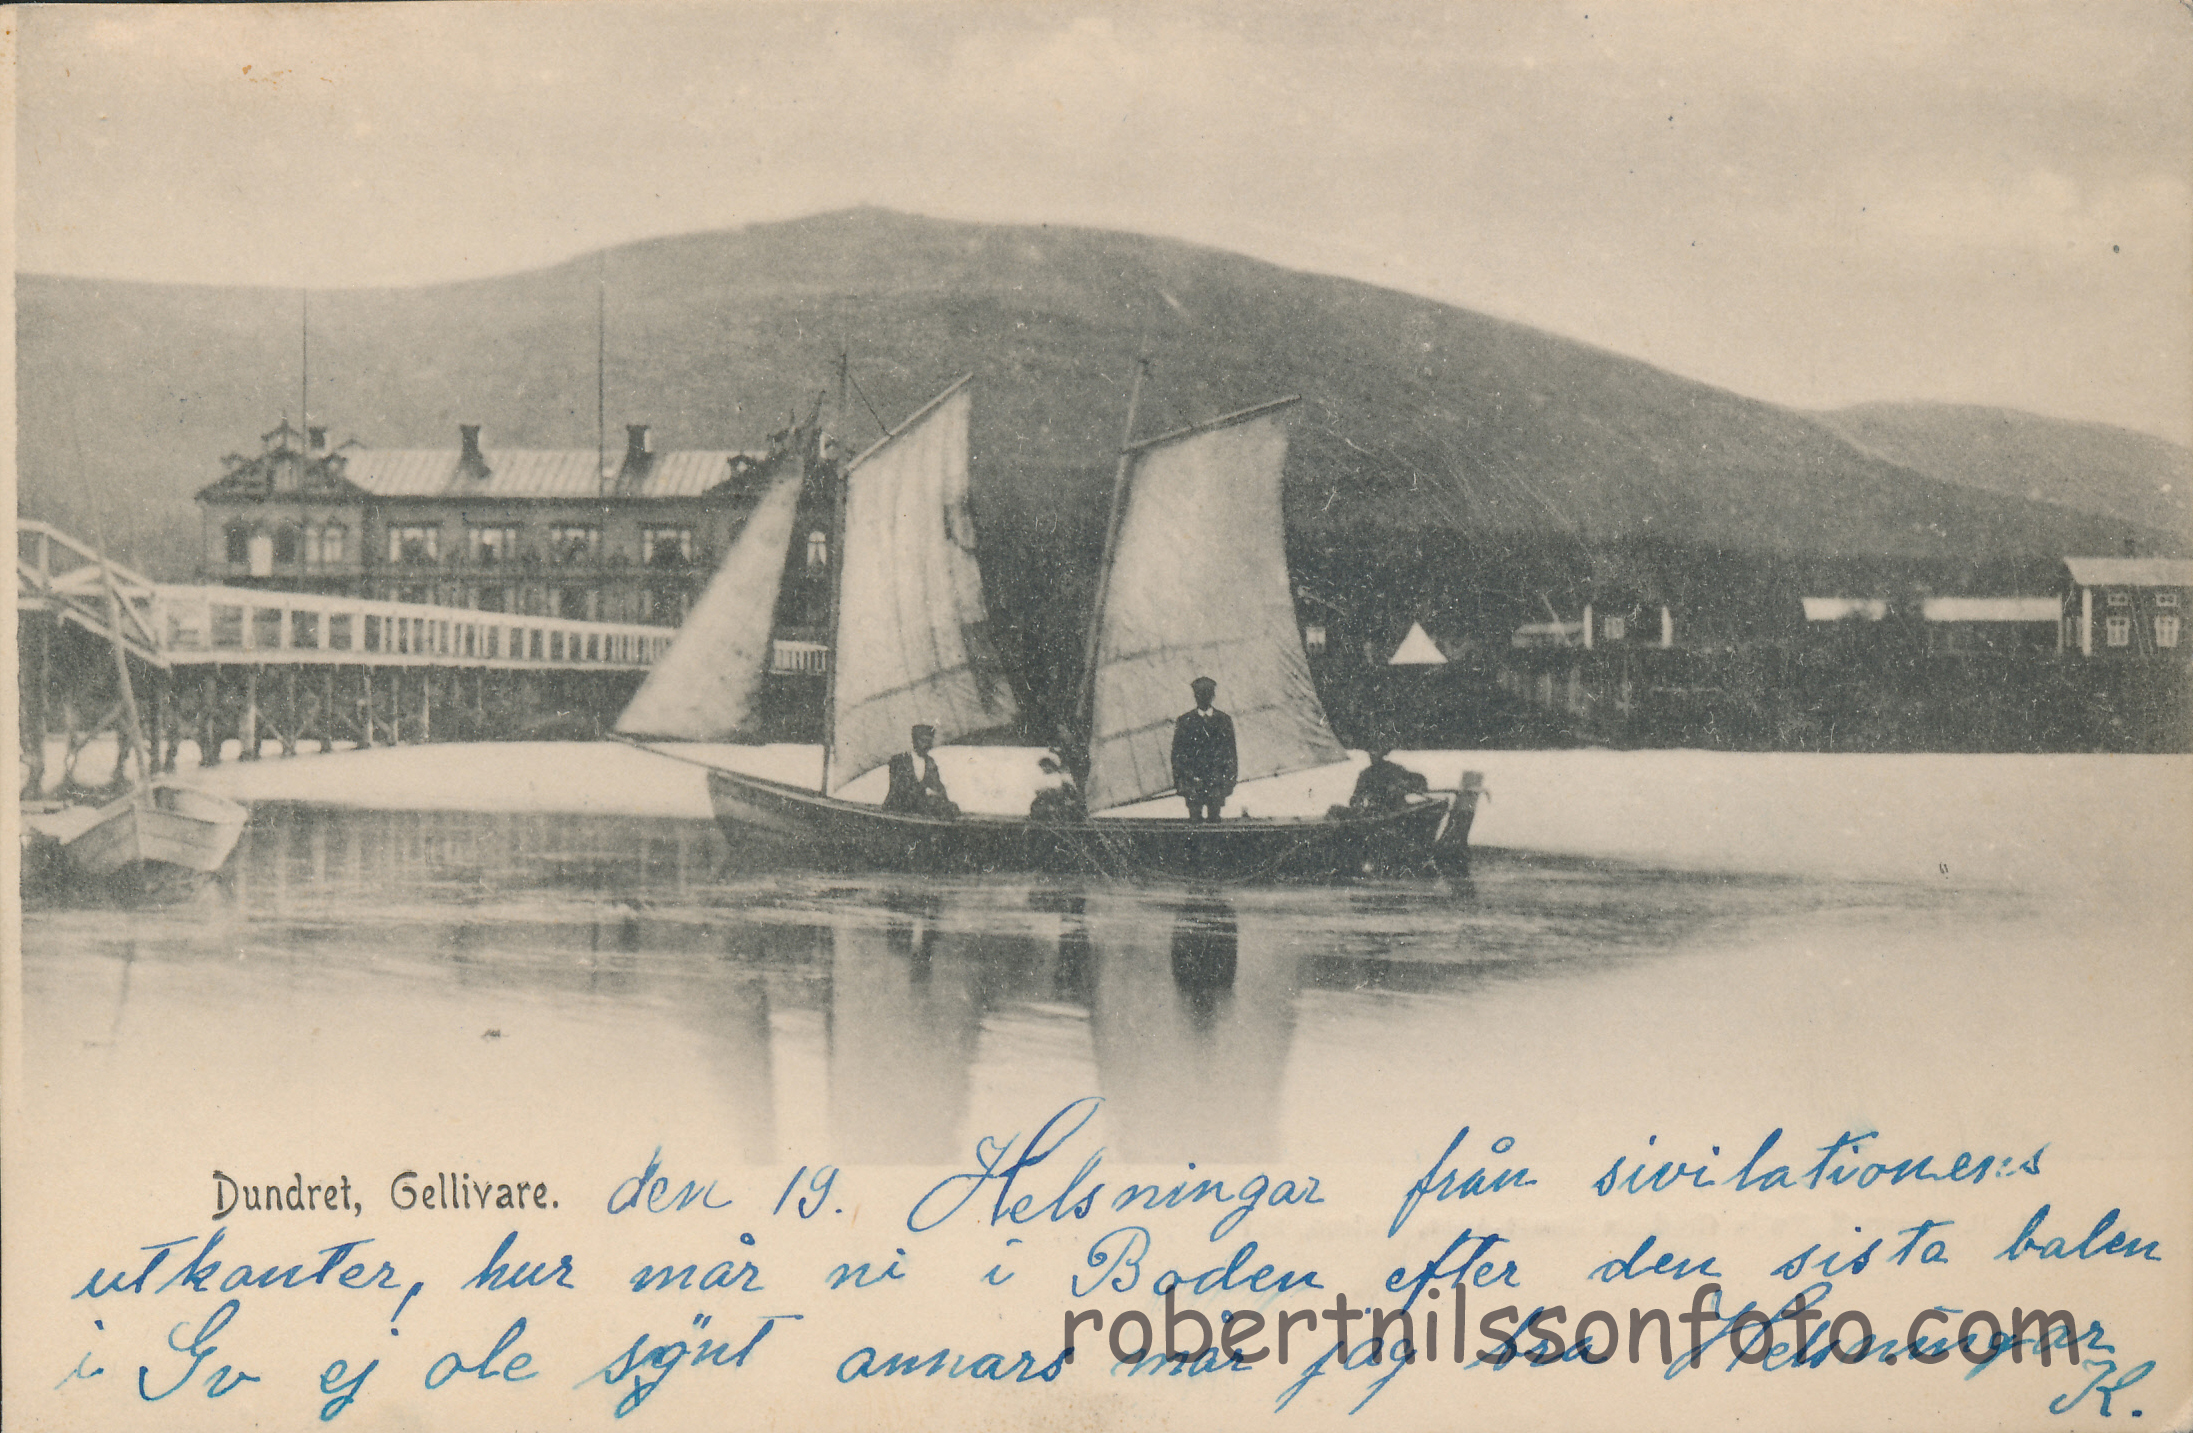 Dundret, Gellivare. den 19. Helsningar från sivilationens
utkanter, hur mår ni i Boden efter den sista balen
i Gv ej ole synt annars mår jag bra Helsningar
K.
robertnilssonfoto.com